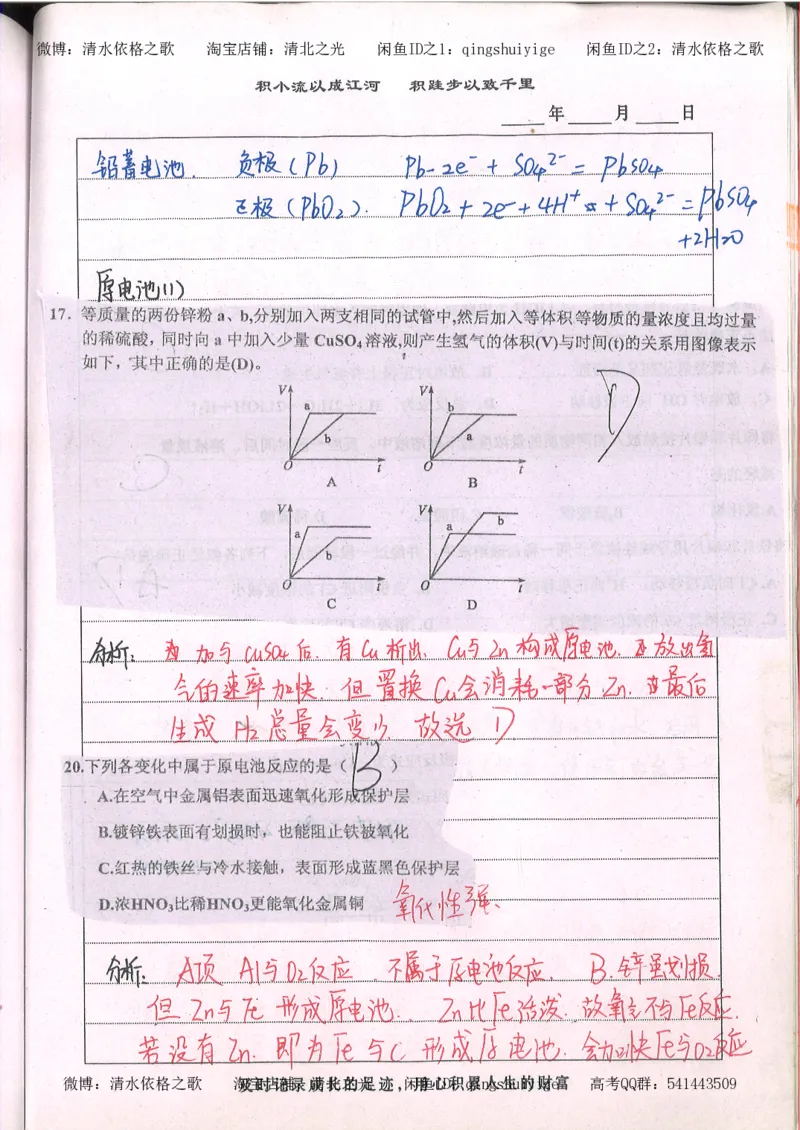 微博：清水依格之歌 淘宝店铺：清北之光 闲鱼ID之1：qingshuiyige 闲鱼ID之2：清水依格之歌
积小流以成江河 积跬步以致千里
____年____月____日
铅蓄电池. 负极(Pb) Pb-2e⁻+SO₄²⁻=PbSO₄
正极(PbO₂). PbO₂+2e⁻+4H⁺+SO₄²⁻=PbSO₄
+2H₂O
原电池(1)
17. 等质量的两份锌粉 a、b,分别加入两支相同的试管中,然后加入等体积等物质的量浓度且均过量
的稀硫酸，同时向 a 中加入少量 CuSO₄ 溶液,则产生氢气的体积(V)与时间(t)的关系用图像表示
如下，其中正确的是(D)。
D
V a b O t V b a O t
A B
V a b O t V a b O t
C D
分析: 加与CuSO₄后. 有Cu析出. Cu与Zn构成原电池. 放出氢
气的速率加快. 但置换Cu会消耗一部分Zn. 最后
生成H₂总量会变少 故选D
20.下列各变化中属于原电池反应的是（B）
A.在空气中金属铝表面迅速氧化形成保护层
B.镀锌铁表面有划损时，也能阻止铁被氧化
C.红热的铁丝与冷水接触，表面形成蓝黑色保护层
D.浓HNO₃比稀HNO₃更能氧化金属铜 氧化性强.
分析: A项 Al与O₂反应. 不属于原电池反应. B.锌虽划损.
但Zn与Fe形成原电池. Zn比Fe活泼. 故氧气不与Fe反应.
若没有Zn. 即为Fe与C形成原电池. 会加快Fe与O₂反应
微博：清水依格之歌 及时记录成长的足迹，用心积累人生的财富 高考QQ群：541443509